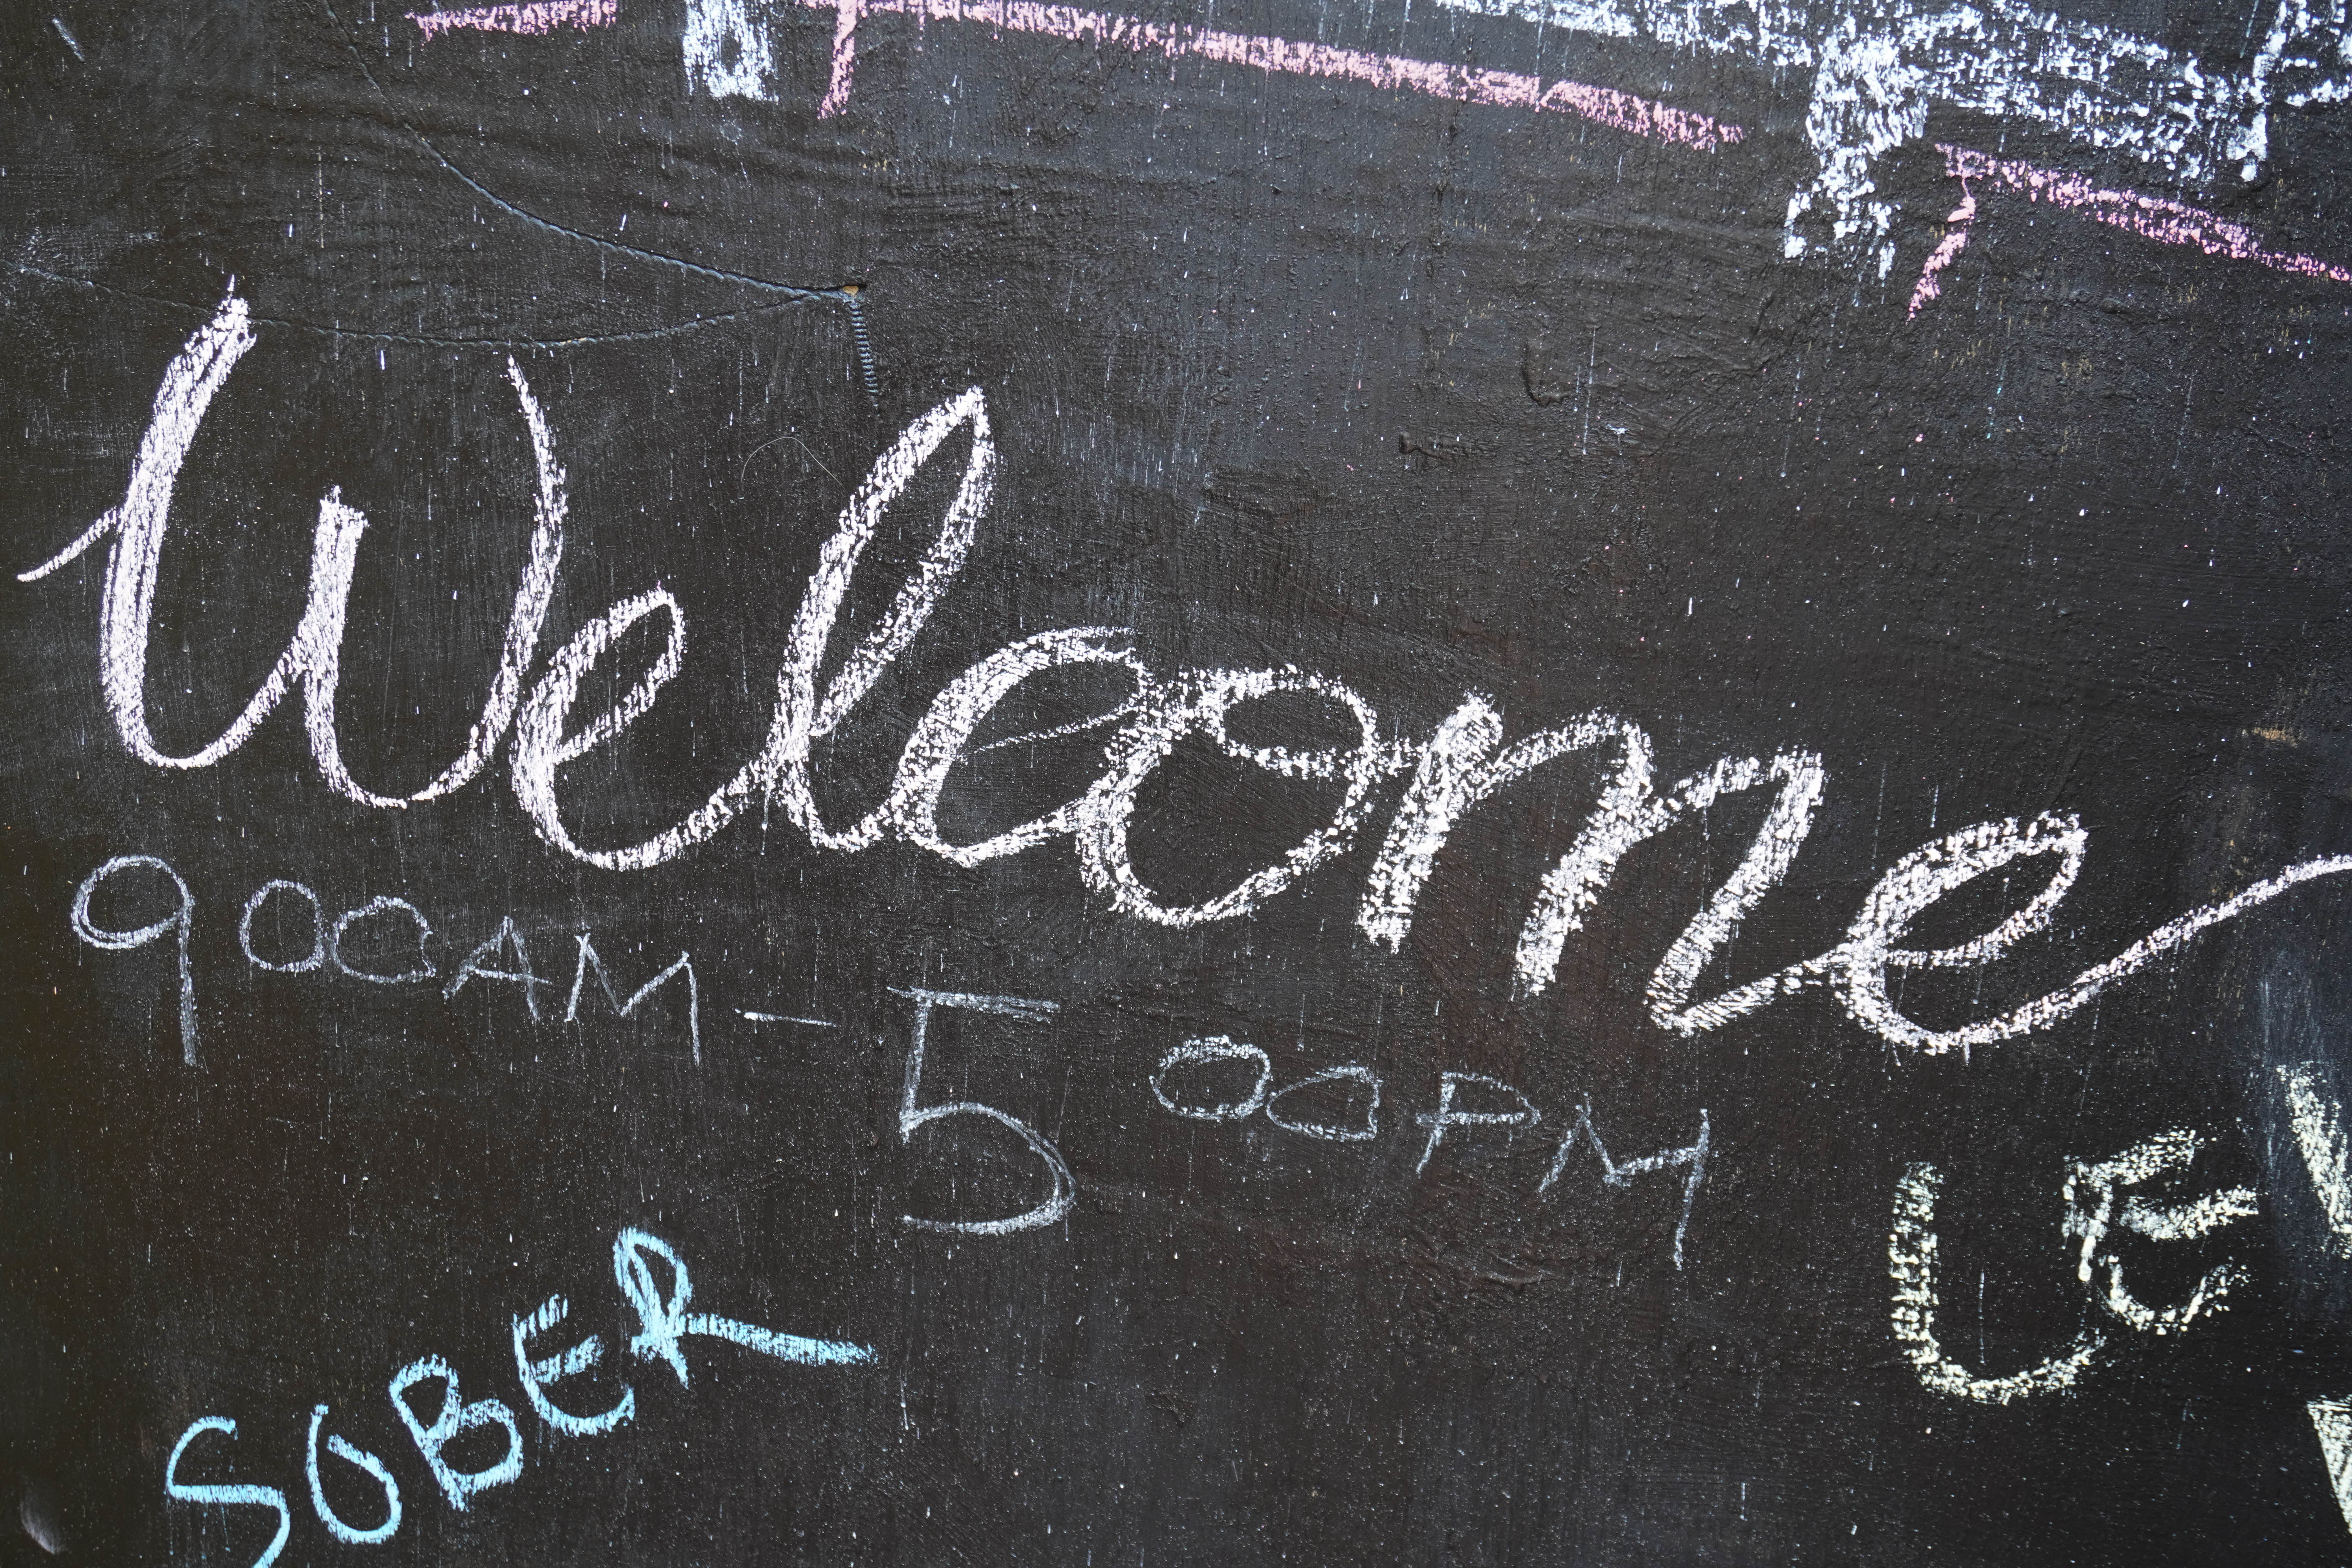 Welcome
900AM - 500PM
SOBER
LE